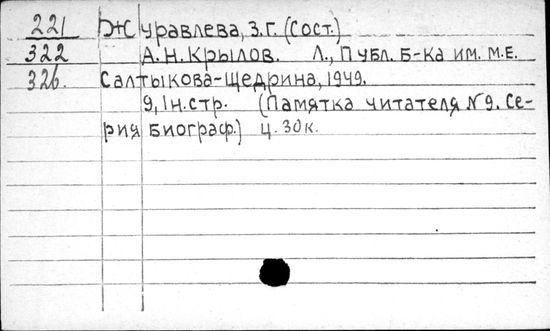 221 Журавлева, З.Г. (Сост.)
322 А.Н. Крылов. Л., Публ. Б-ка им. М.Е.
326. Салтыкова-Щедрина, 1949.
9, 1н.стр. (Памятка читателя №9. Се-
рия Биограф.) ц. 30к.